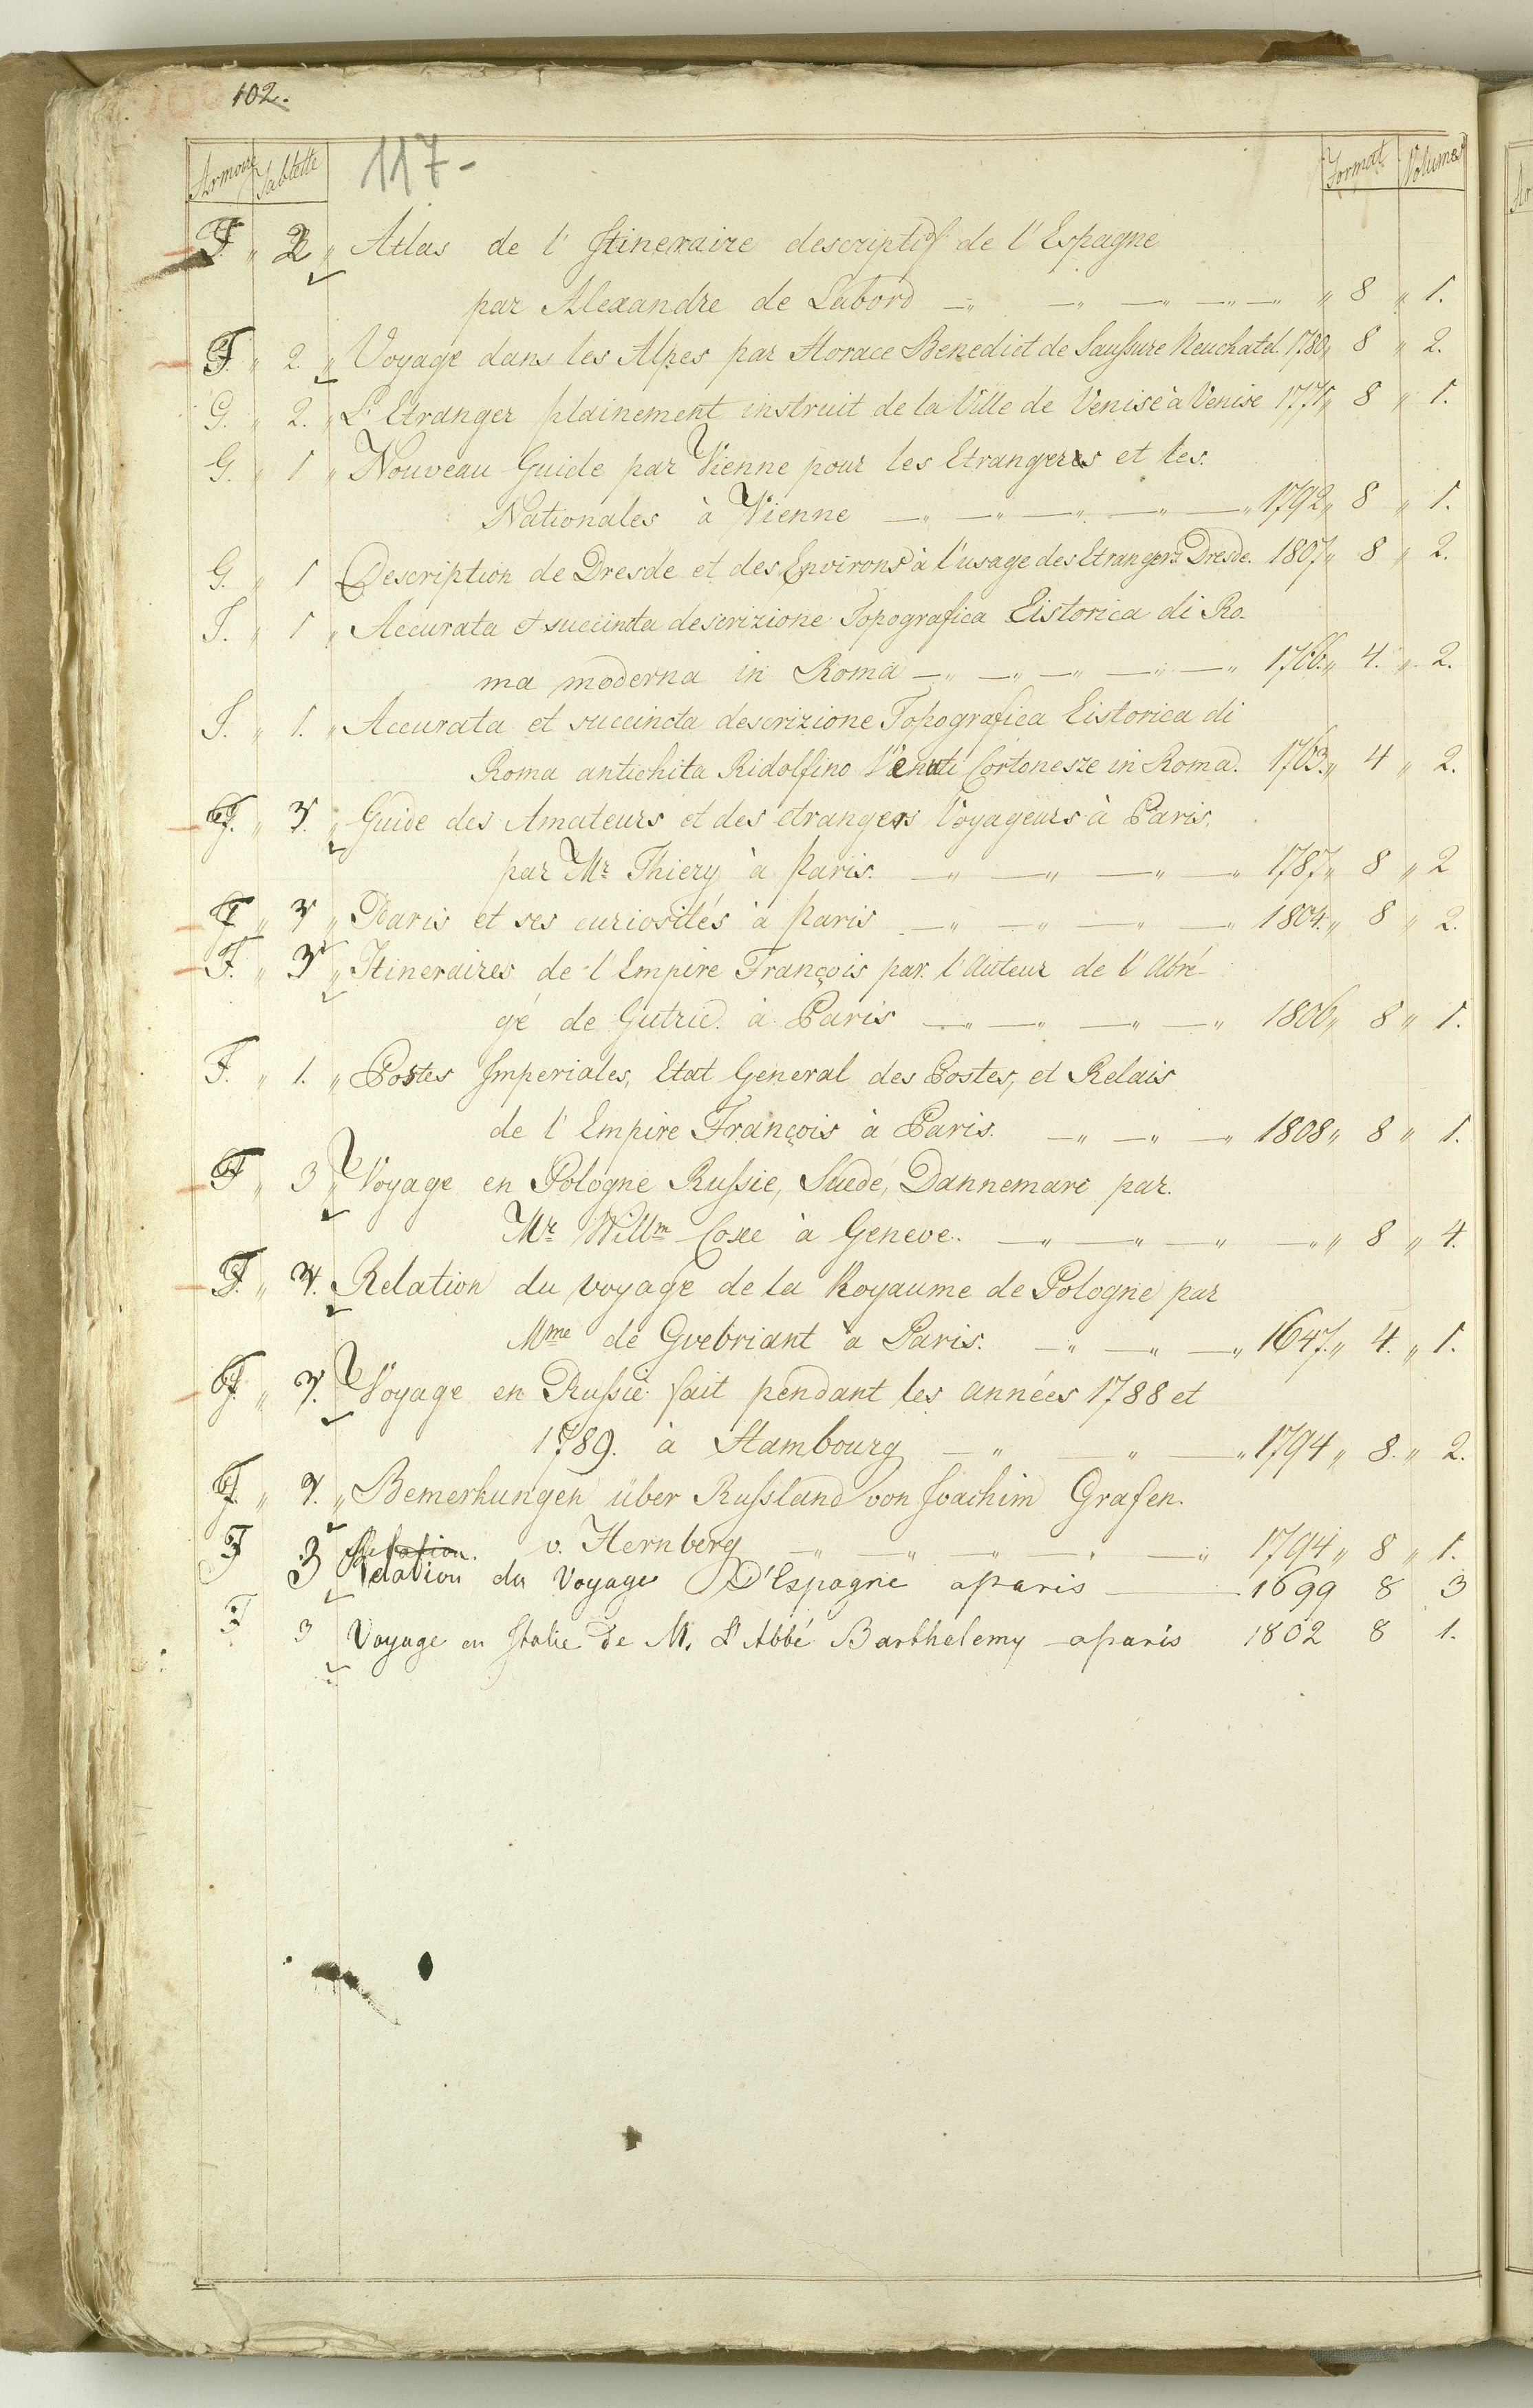 102.
117-
Armoire Tablette Format Volumes
F. " 2 " Atlas de l' Itineraire descriptif de l'Espagne
par Alexandre de Labord —" —" —" —" — " 8 " 1.
F. " 2. " Voyage dans les Alpes par Horace Benedict de Saussure Neuchatel. 1780 " 8 " 2.
G. " 2. " L'Etranger plainement instruit de la Ville de Venise à Venise 1771 " 8 " 1.
G. " 1 " Nouveau Guide par Vienne pour les Etrangers et les
Nationales à Vienne —" —" —" —" —" 1792 " 8 " 1.
G. " 1 Description de Dresde et des Environs à l'usage des Etrangers Dresde. 1807 " 8 " 2.
J. " 1 " Accurata et succinta descrizione Topografica Eistorica di Ro-
ma moderna in Roma —" —" —" —" —" 1766. " 4. " 2.
J. " 1. " Accurata et succincta descrizione Topografica Eistorica di
Roma antichita Ridolfino Venuti Cortonesze in Roma. 1763. " 4 " 2.
F. " 3. " Guide des Amateurs et des etrangers Voyageurs à Paris.
par Mr. Thiery à Paris. —" —" —" —" 1787 " 8 " 2
F. " 3 " Paris et ses curiosités à Paris —" —" —" —" 1804. " 8 " 2.
F. " 3 " Itineraires de l'Empire François par l'Auteur de l'Abré-
gé de Gutrie. à Paris —" —" —" —" 1806 " 8 " 1.
F. " 1. " Postes Imperiales, Etat General des Postes, et Relais
de l'Empire François à Paris. —" —" —" 1808 " 8 " 1.
F " 3 " Voyage en Pologne Russie, Suede, Dannemarc par
Mr Willm Coxe à Geneve. —" —" —" —" " 8 " 4.
F. " 4. Relation du voyage de la Royaume de Pologne par
Mme de Gvebriant à Paris. —" —" —" 1647. " 4. " 1.
F. " 3. Voyage en Russie fait pendant les années 1788 et
1789. à Hambourg —" —" —" 1794 " 8. " 2.
F. " 3. " Bemerkungen über Russland von Joachim Grafen.
v. Hernberg —" —" —" —" —" 1794 " 8 " 1.
F 3 Relation.
Relation du Voyage D'Espagne aparis — 1699 8 3
F 3 Voyage en Italie de M. L'Abbé Barthelemy aparis 1802 8 1.